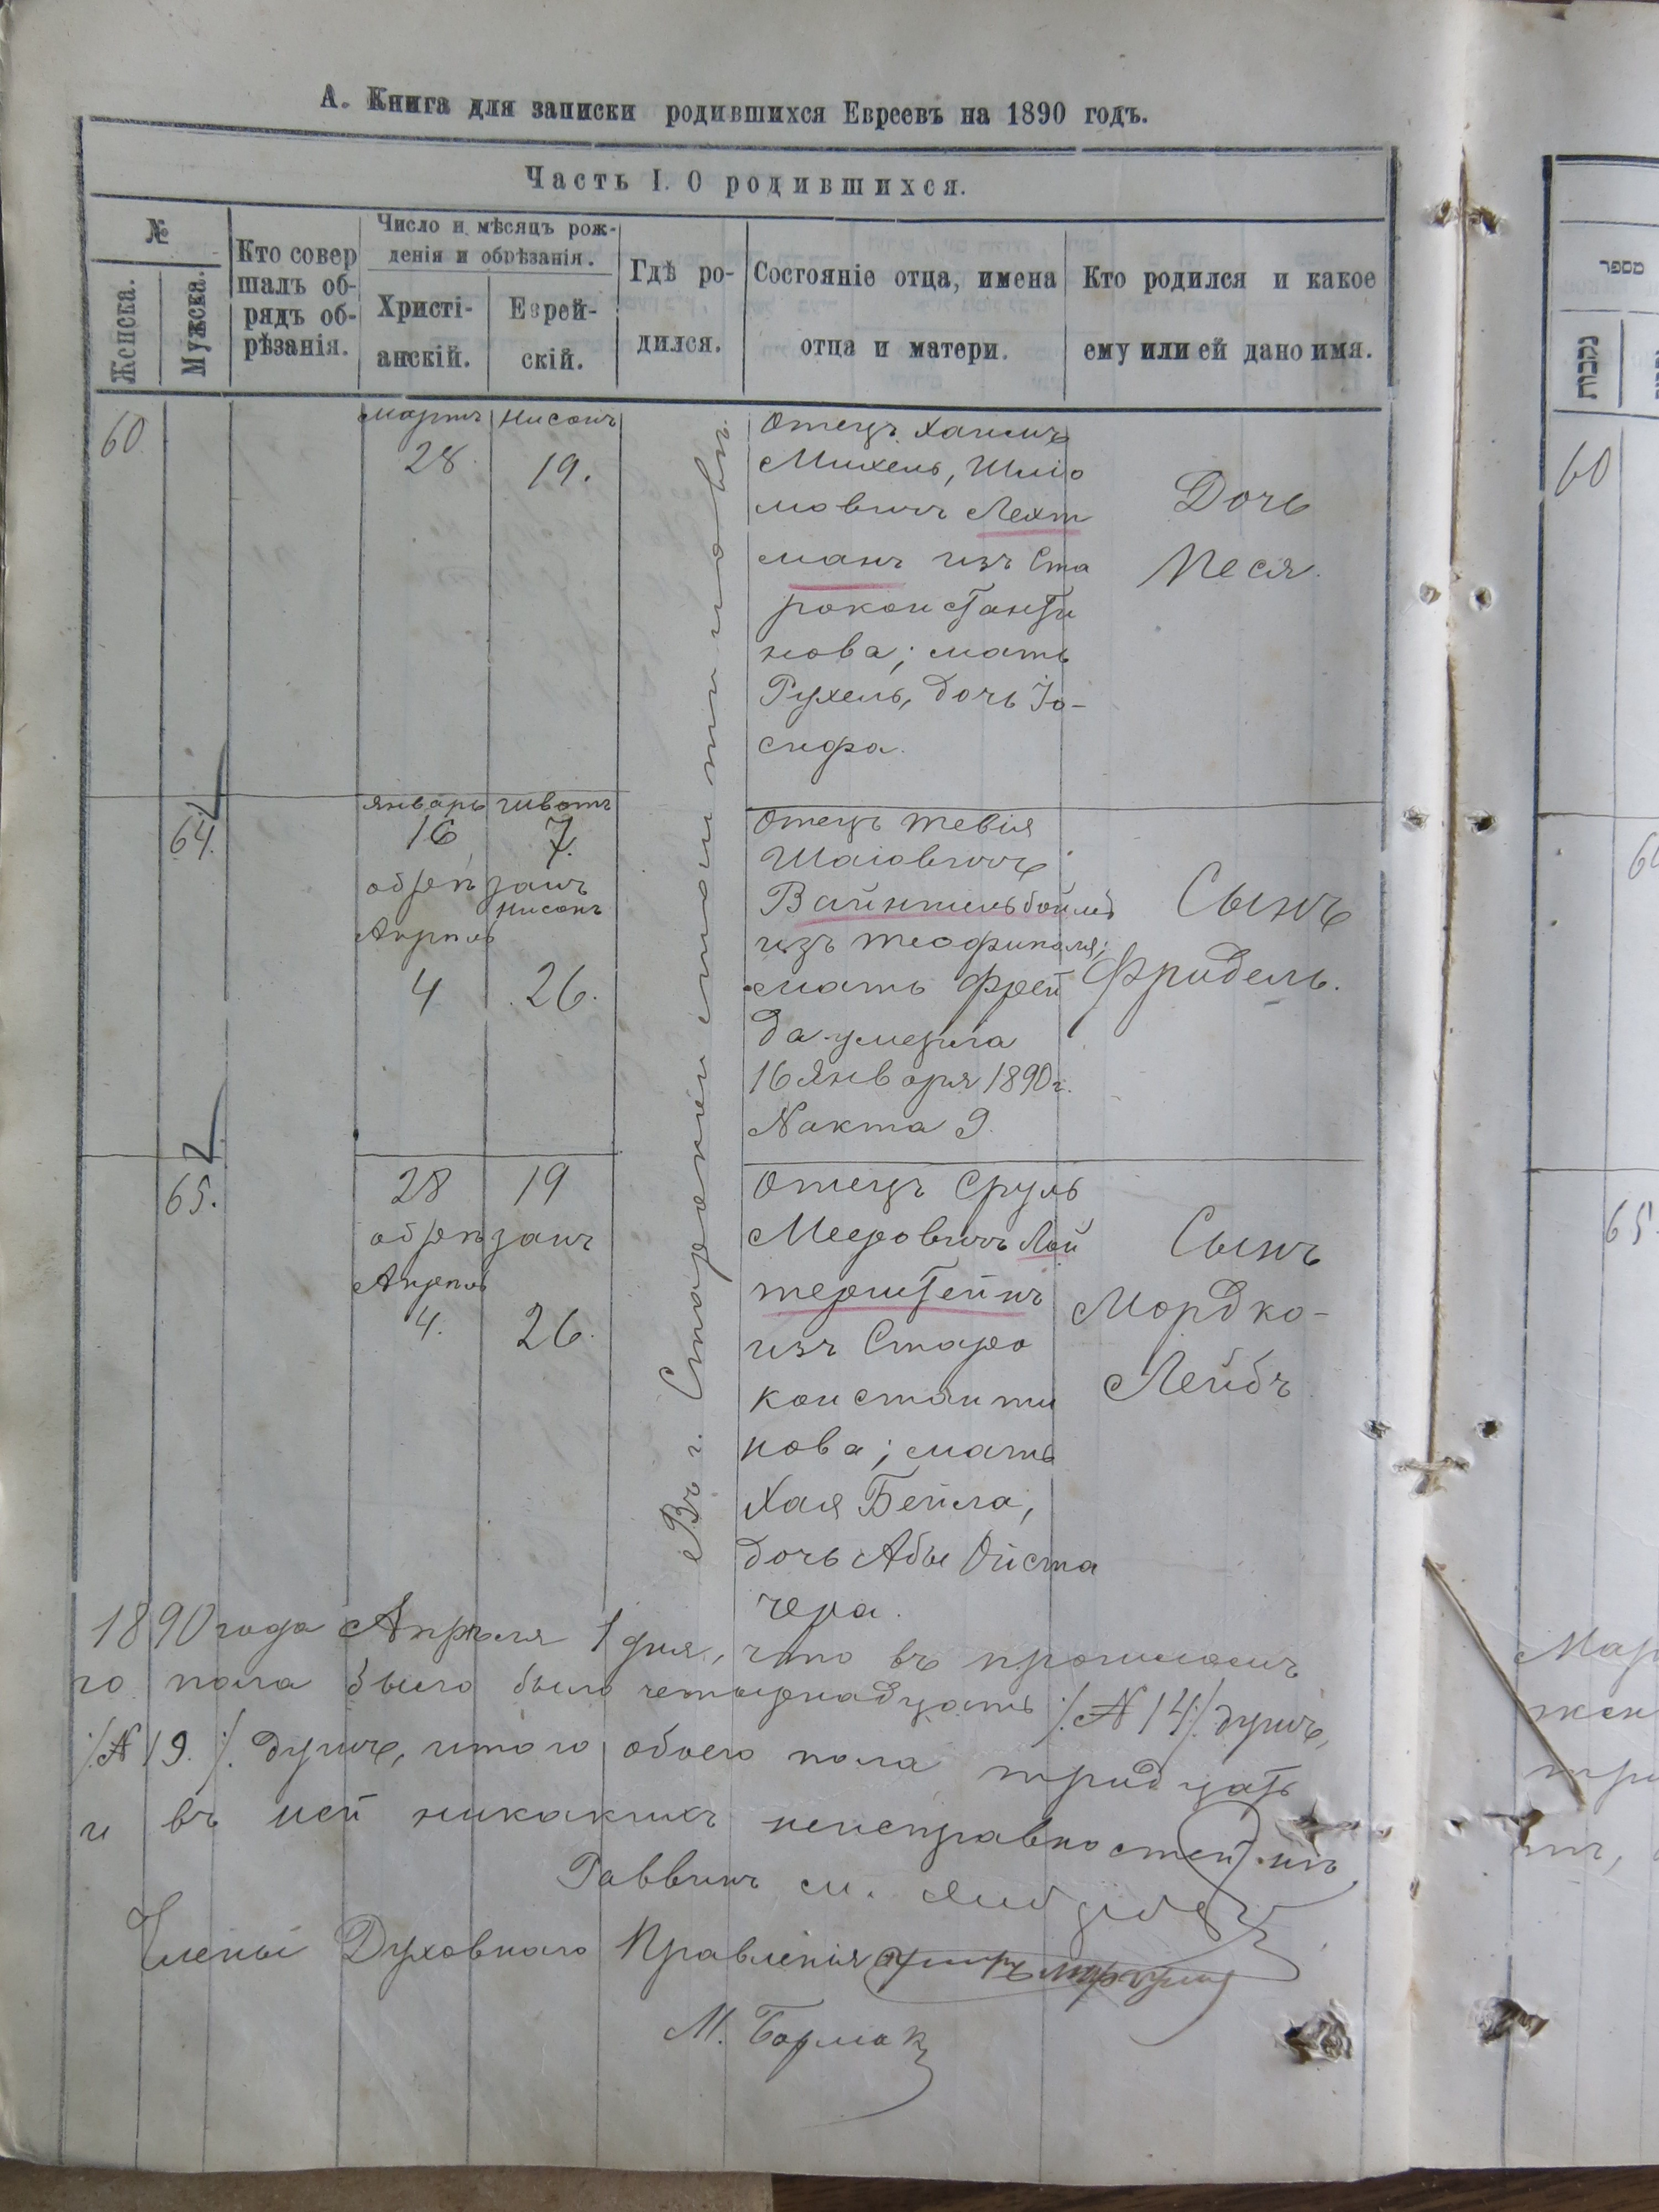 А. Книга для записки родившихся Евреевъ на 1890 годъ.
Часть I. О родившихся.
№
Женска.
Мужска.
Кто совер
шалъ об-
рядъ об-
рѣзанія.
Число и мѣсяцъ рож-
денія и обрѣзанія.
Христі-
анскій.
Еврей-
скій.
Гдѣ ро-
дился.
Состояніе отца, имена
отца и матери.
Кто родился и какое
ему или ей дано имя.
60
мартъ
28
нисонъ
19.
Въ г. Староконстантиновѣ
Отецъ Хаимъ
Михель, Шліо
мовичъ Лехт
манъ изъ Ста
роконстанти
нова; мать
Рухель, дочь Іо-
сифа.
Дочь
Песя.
64.
январь
16
шватъ
7.
обрѣзанъ
Апрель
4
нисонъ
26.
Отецъ Тевія
Шаіовичъ
изъ Теофиполя;
мать Фрей
да умерла
16 Января 1890 г.
№ акта 9.
Сынъ
Фридель.
65.
28
19
обрѣзанъ
Апрель
4.
26.
Отецъ Сруль
Мееровичъ Лой
терштейнъ
изъ Старо
константи
нова; мать
Хая Бейла,
дочь Абы Ойста
чера.
Сынъ
Мордко-
Лейбъ
1890 года Апрѣля 1 дня, что въ прошломъ
го пола было было четырнадцать /:№ 14:/ душъ,
/:№ 19.:/ душъ, итого обоего пола тридцать
и въ ней никакихъ неисправностей нѣ
Раввинъ м.
Члены Духовнаго Правленія
М. Бормак
מספר
נקבות
60
64
65.
Мар
жен
три